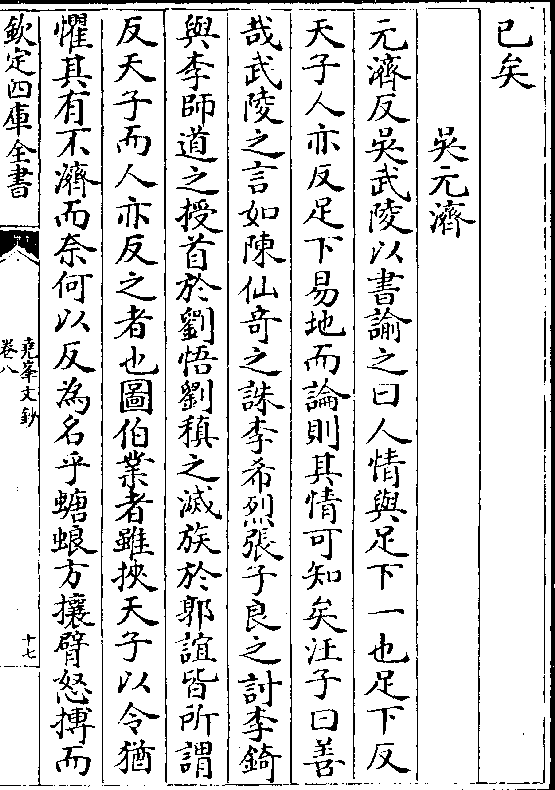 已矣
吳元濟
元濟反吳武陵以書諭之曰人情與足下一也足下反
天子人亦反足下易地而論則其情可知矣汪子曰善
哉武陵之言如陳仙竒之誅李希烈張子良之討李錡
與李師道之授首於劉悟劉稹之滅族於郭誼皆所謂
反天子而人亦反之者也圖伯業者雖挾天子以令猶
懼其有不濟而奈何以反為名乎螗蜋方攘臂怒搏而
欽定四庫全書
堯峯文鈔
卷八
十七